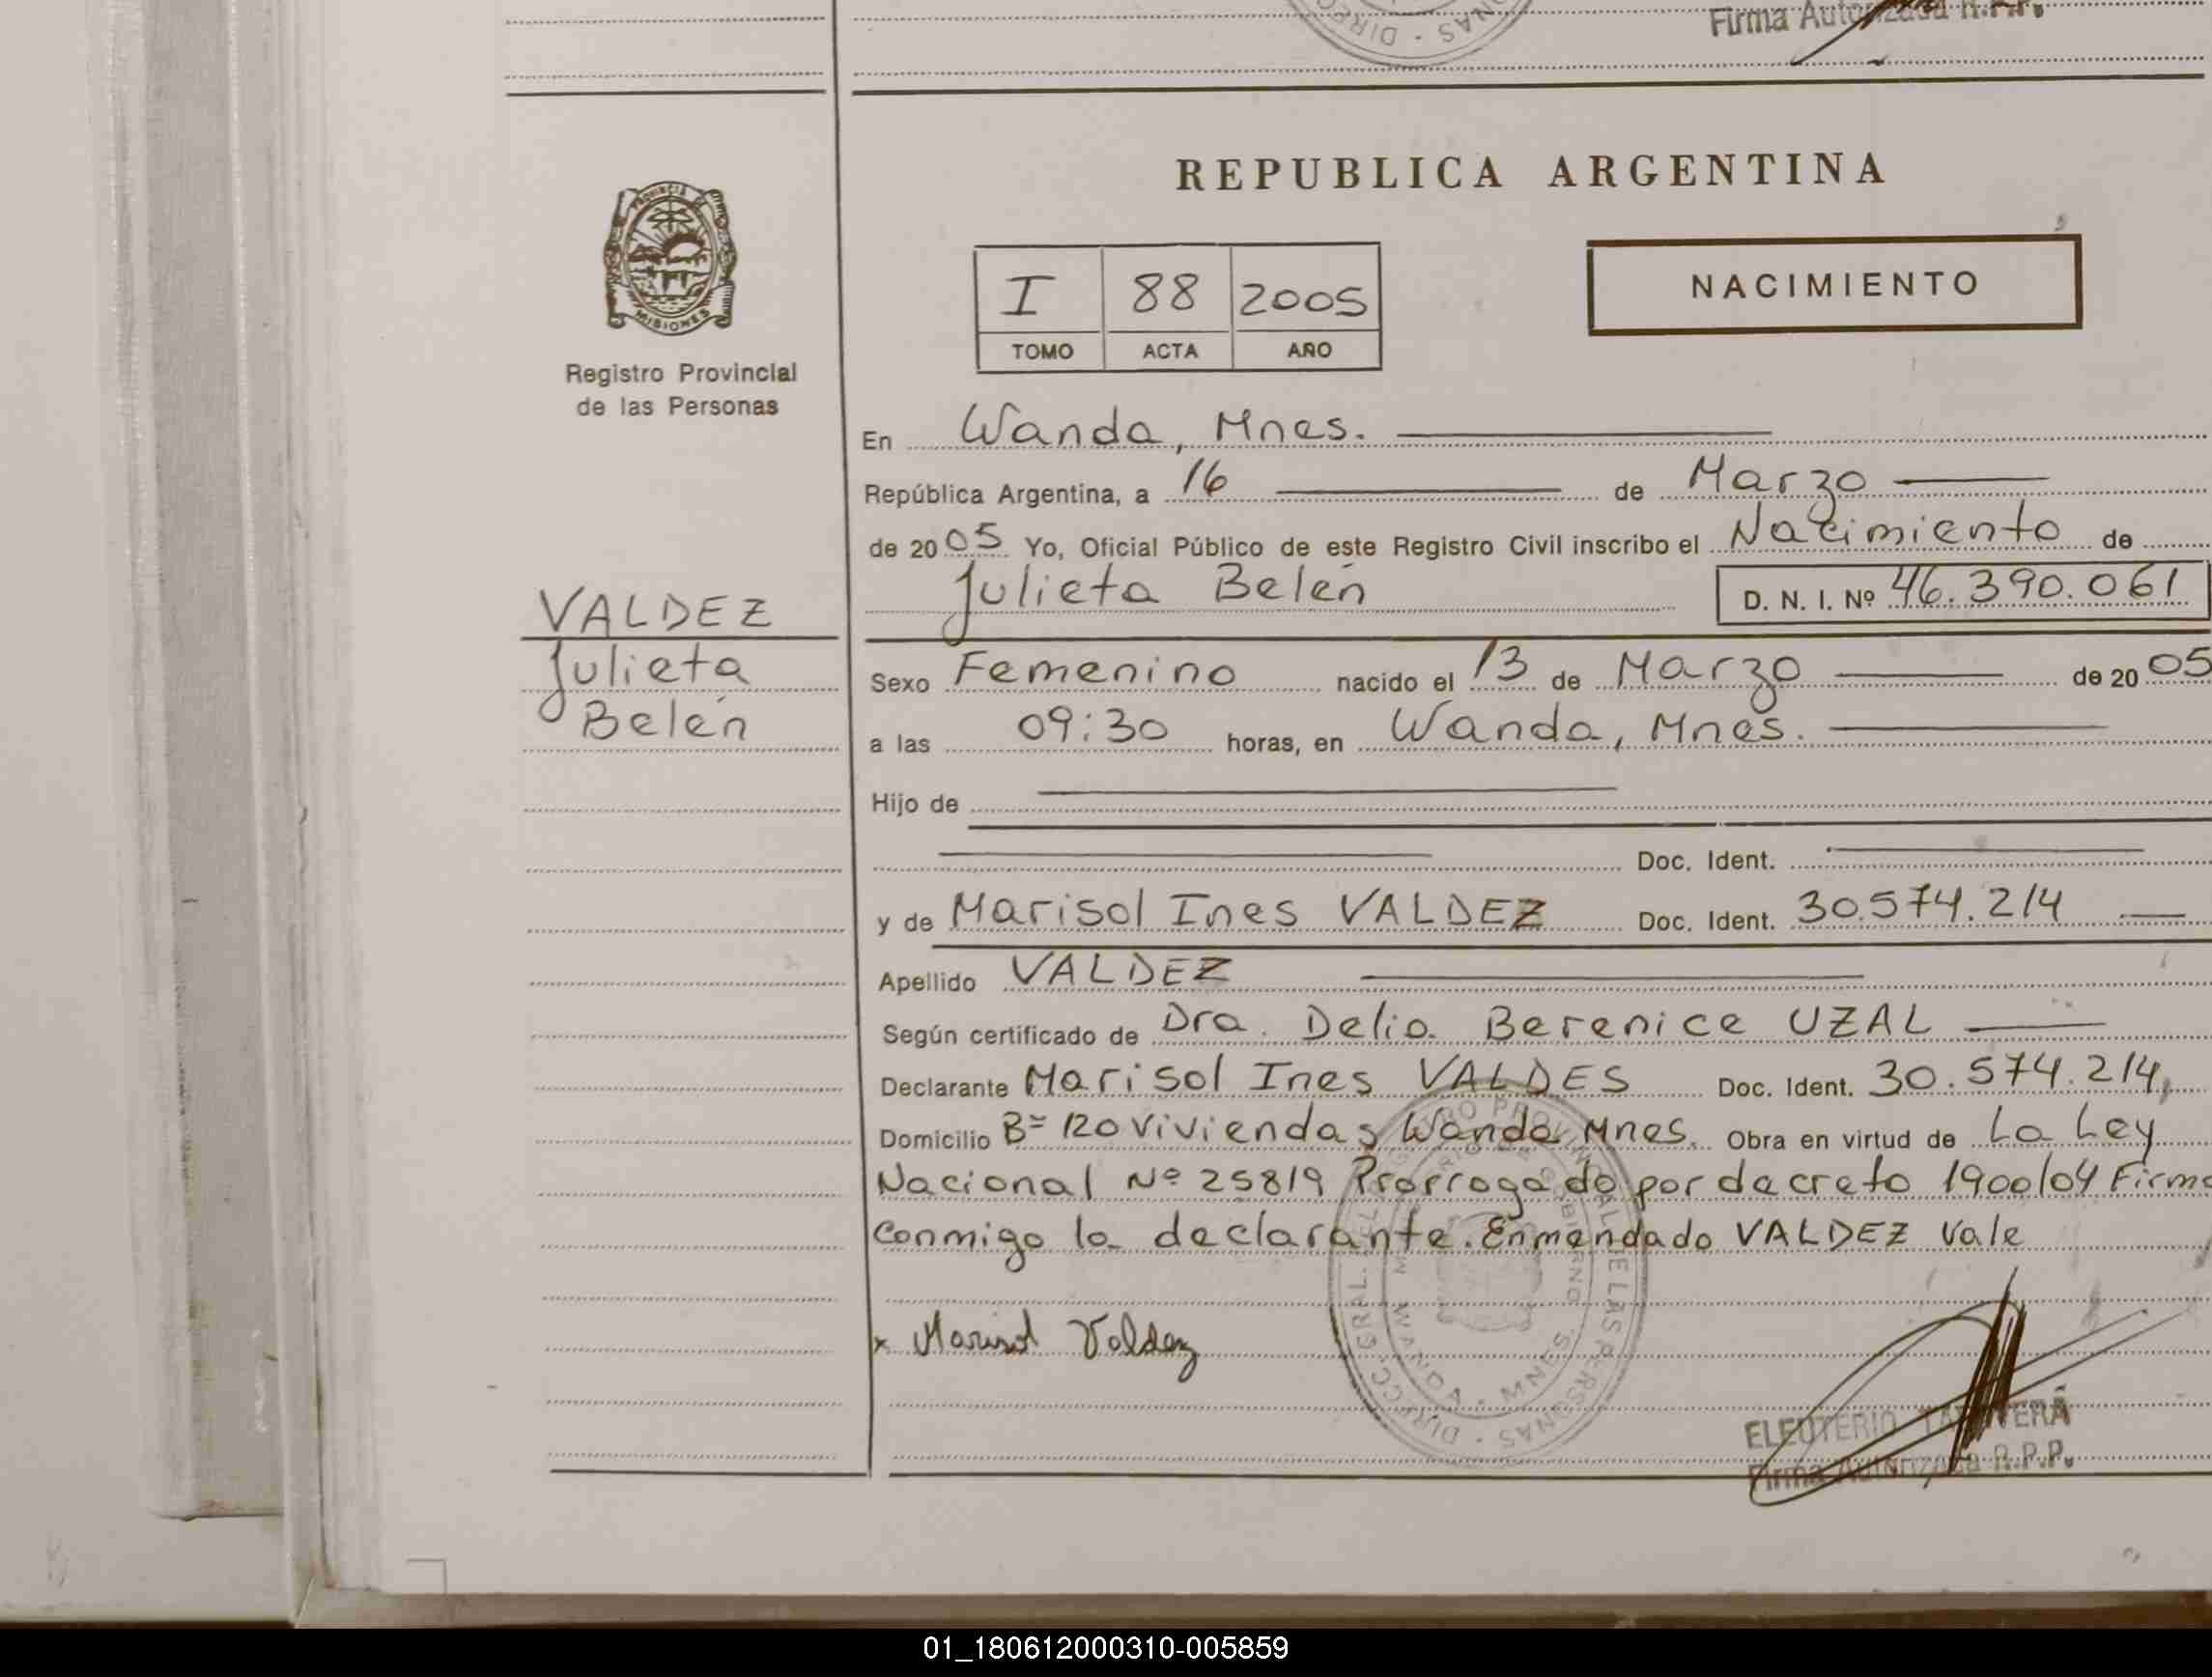 Firma Autorizada R.P.P.
REPUBLICA ARGENTINA
PROVINCIA DE
MISIONES
Registro Provincial
de las Personas
I 88 2005
TOMO ACTA AÑO
NACIMIENTO
En Wanda, Mnes.
República Argentina, a 16 de Marzo
de 2005 Yo, Oficial Público de este Registro Civil inscribo el Nacimiento de
Julieta Belén D. N. I. Nº 46.390.061
VALDEZ
Julieta
Belén
Sexo Femenino nacido el 13 de Marzo de 2005
a las 09:30 horas, en Wanda, Mnes.
Hijo de
Doc. Ident.
y de Marisol Ines VALDEZ Doc. Ident. 30.574.214
Apellido VALDEZ
Según certificado de Dra. Delia Berenice UZAL
Declarante Marisol Ines VALDES Doc. Ident. 30.574.214,
Domicilio Bº 120 viviendas Wanda Mnes. Obra en virtud de La Ley
Nacional Nº 25819 Prorrogado por decreto 1900/04 Firma
conmigo la declarante. Enmendado VALDEZ vale
x Marisol Valdez
DIRECC. GRAL. DEL REGISTRO PROVINCIAL DE LAS PERSONAS
MINISTERIO DE GOBIERNO
WANDA - MNES.
ELEUTERIO
Firma Autorizada R.P.P.
01_180612000310-005859